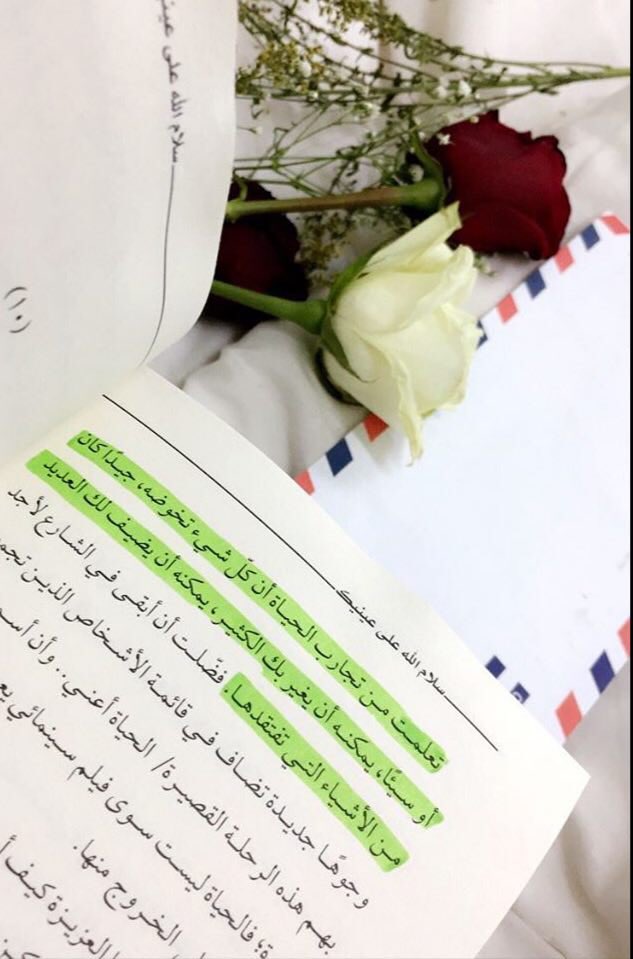 سلام الله على عيني
(١٠)
سلام الله على عينيك
تعلمت من تجارب الحياة أن كلّ شيء تخوضه، جيدًا كان
أو سيئًا، يمكنه أن يغير بك الكثير، يمكنه أن يضيف لك العديد
من الأشياء التي تفتقدها. فضّلت أن أبقى في الشارع لأجد
وجوهًا جديدة تضاف في قائمة الأشخاص الذين
بهم هذه الرحلة القصيرة/ الحياة أعني.. وأن
فالحياة ليست سوى فيلم سينمائي
الخروج منها.
العزيزة كيف